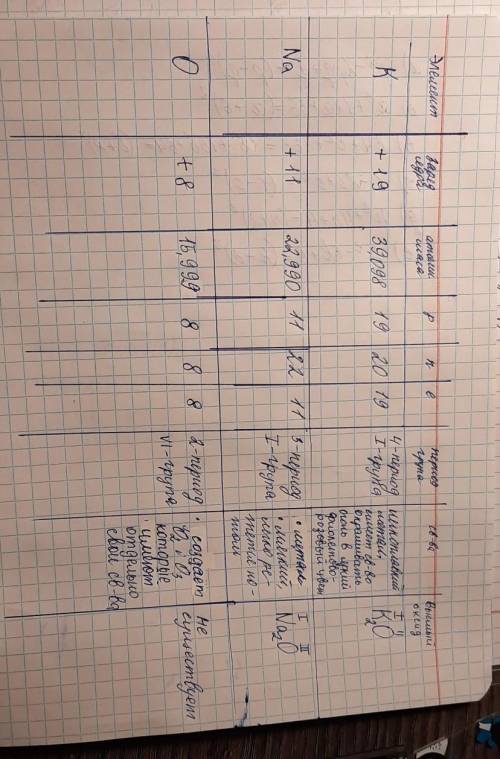 Элемент
заряд ядра
атомн. масса
p
n
e
период група
св-ва
Высший оксид
K
+19
39,098
19
20
19
4-период
I-група
металл,
имеет св-во
окрашивать
огонь в яркий
фиолетово-
розовый цвет
I II
K2O
Na
+11
22,990
11
22
11
3-период
I-група
• мягкий,
I II
Na2O
O
+8
15,999
8
8
8
2-период
VI-група
• создает
O2 и O3
которые
имеют
отдельно
свои св-ва
не
существует